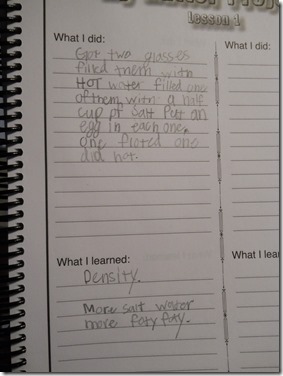 Lesson 1
What I did:
What I did:
Got two glasses
filled them with
HOT water filled one
of them with a half
cup of salt Put an
egg in each one.
one floted one
did not.
What I learned:
What I lear
Density.
More salt water
more